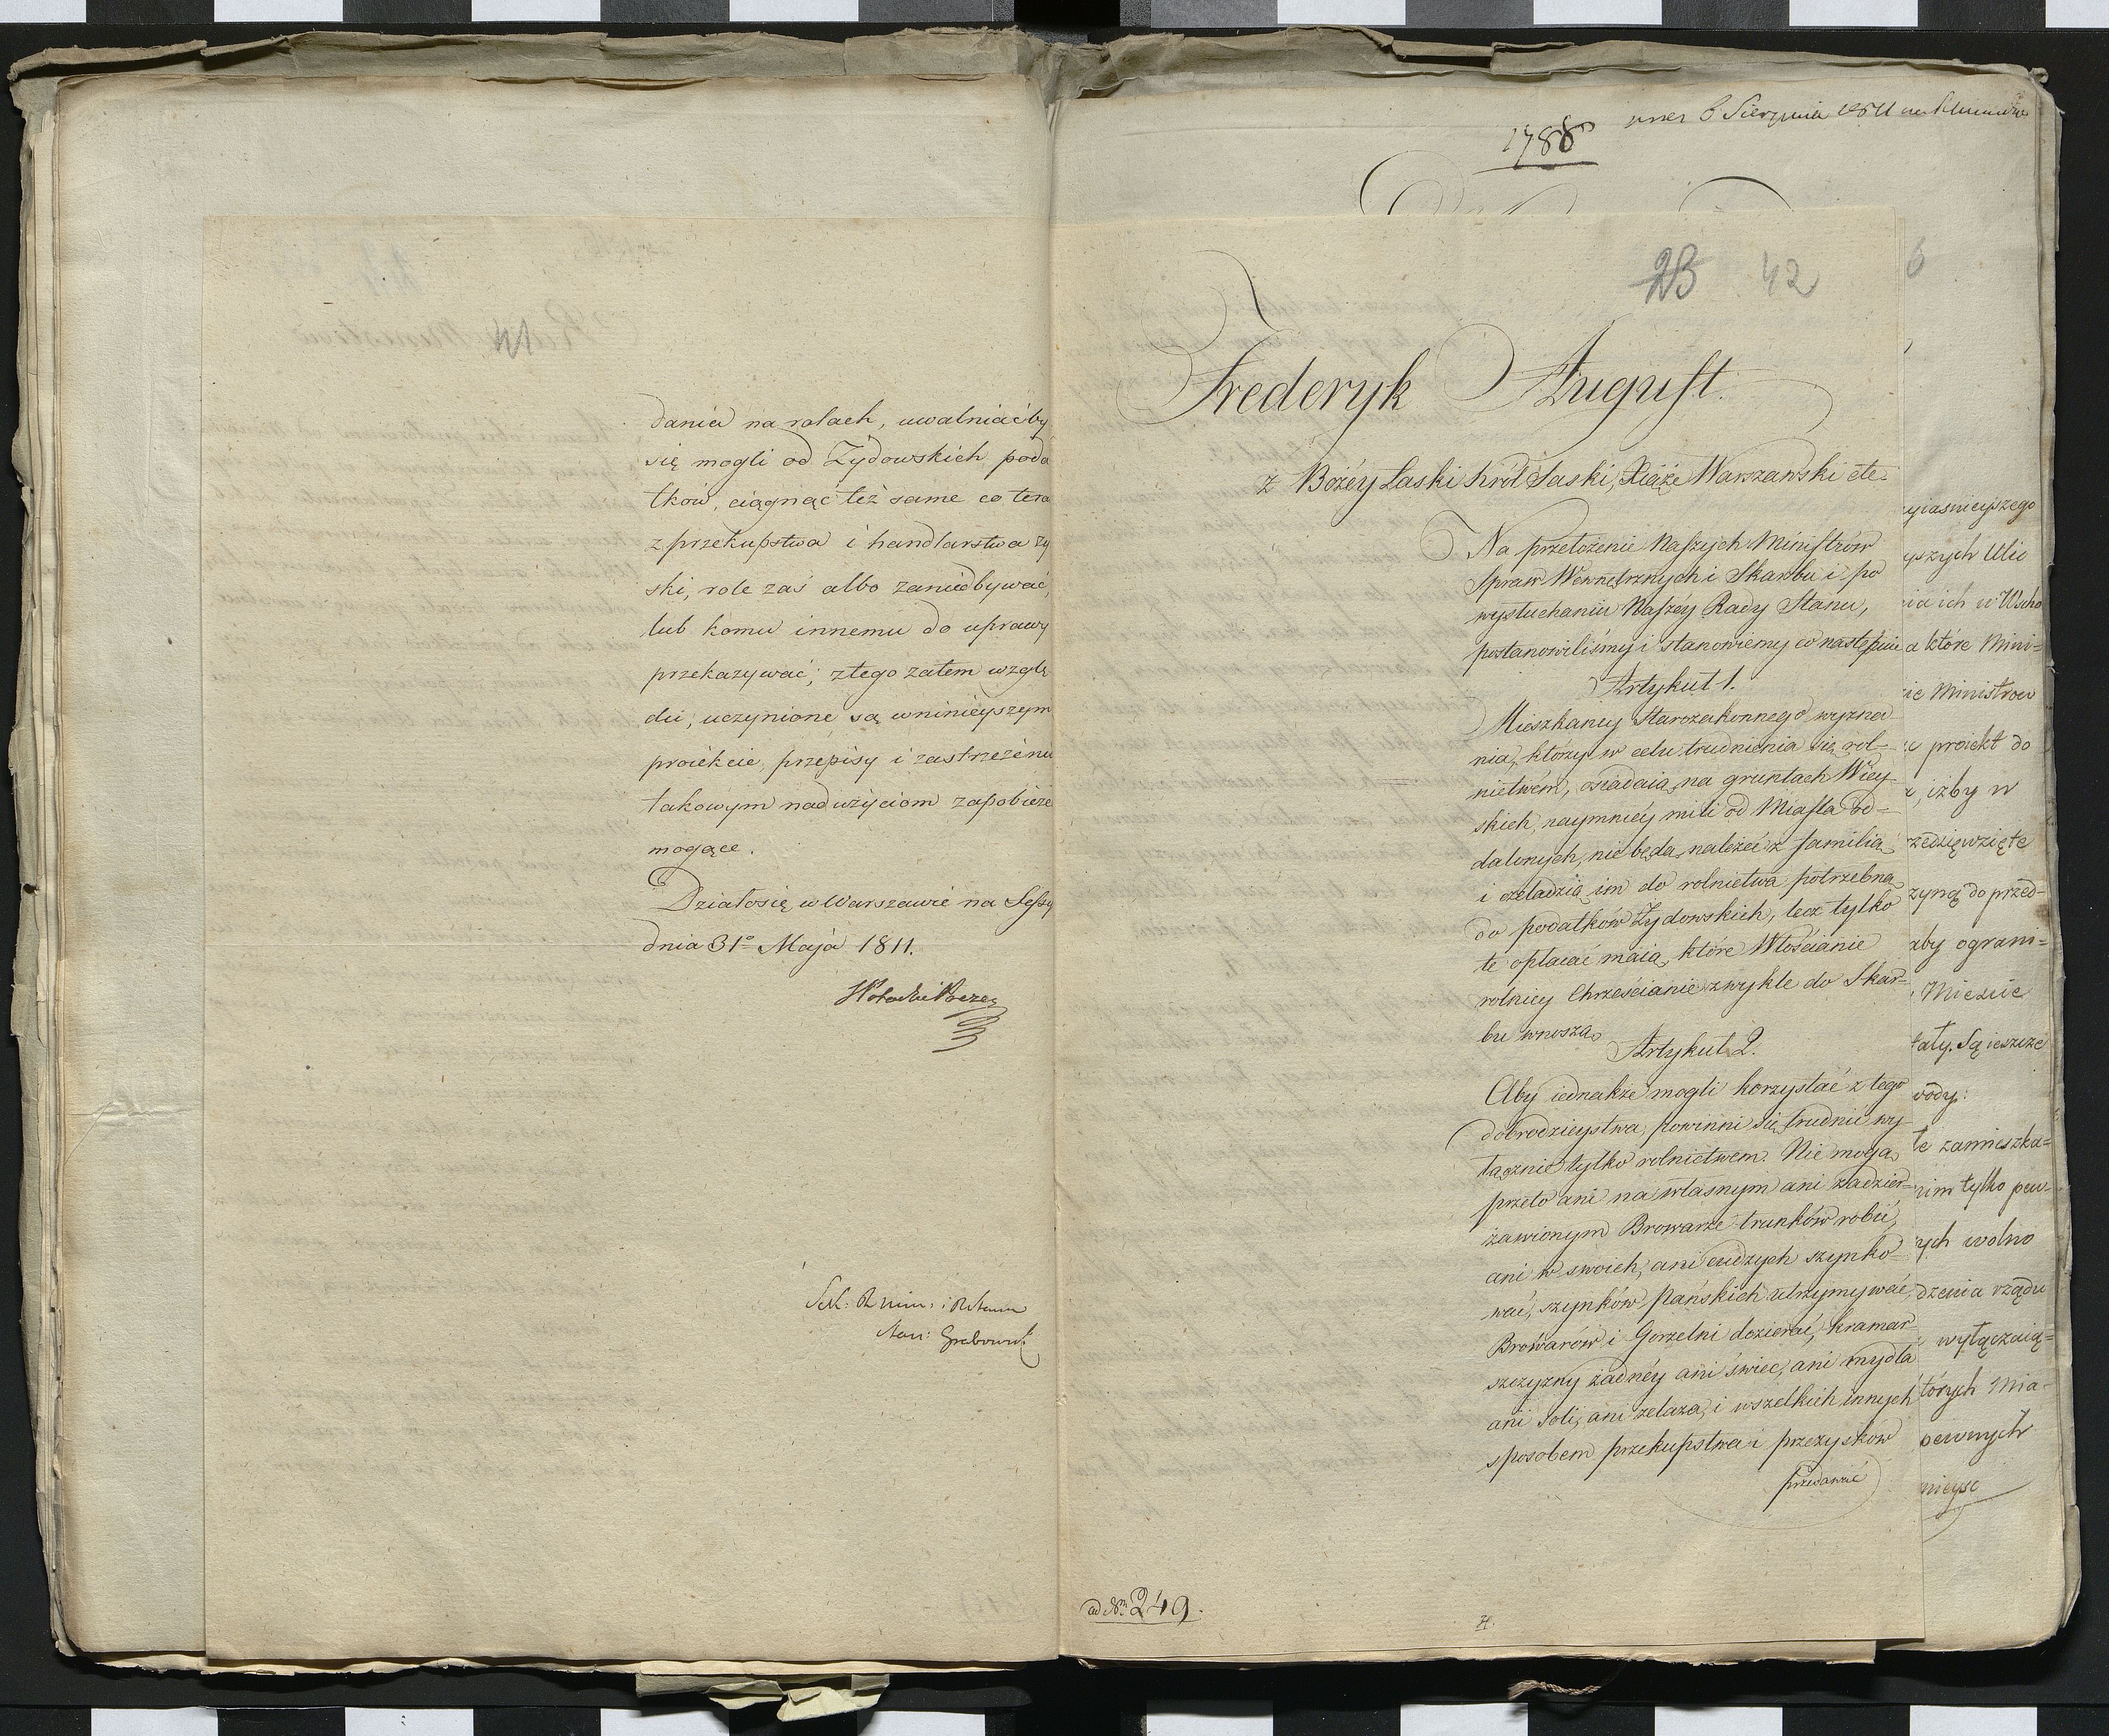 dania na rolach, uwalniać by
się mogli od Żydowskich poda
tków, ciągnąc też same co tera
z przekupstwa i handlarstwa zy
ski, role zaś albo zaniedbywać,
lub komu innemu do uprawy
przekazywać; z tego zatem wzglę
du, uczynione są w ninieyszym
proiekcie, przepisy i zastrzeżenia
takowym nadużyciom zapobieże
mogące.
Działo się w Warszawie na Sessy
dnia 31º Maja 1811.
Sek: R. Min: i R. Stanu
Grabowski
1788
6 Sierpnia 1811
23 42
Frederyk August.
z Bożey Łaski Król Saski, Xiąże Warszawski etc.
Na przełożenie Naszych Ministrów
Spraw Wewnętrznych i Skarbu i po
wysłuchaniu Naszéy Rady Stanu,
postanowiliśmy i stanowiemy co następuie
Artykuł 1.
Mieszkańcy Starozakonnego wyzna
nia, ktorzy w celu trudnienia się rol-
nictwém, osiadaią na gruntach Wiey
skich, naymniéy mili od Miasta od-
dalonych, nie będą należeć z familią
i czeladzią im do rolnictwa potrzebną
do podatków Żydowskich, lecz tylko
te opłacać maią, które Włościanie
rolnicy Chrześcianie zwykle do Skar-
bu wnoszą.
Artykuł 2.
Aby iednakże mogli korzystać z tego
dobrodzieystwa, powinni się trudnić wy
łącznie tylko rolnictwem. Nie mogą
przeto ani na własnym ani zadzier-
żawionym Browarze trunków robić,
ani w swoich, ani cudzych szynko-
wać, szynków Pańskich utrzymywać,
Browarów i Gorzelni dozierać, kramar-
szczyzny żadnéy ani świec, ani mydła
ani soli, ani żelaza, i wszelkich innych
sposobem przekupstwa i przezysków
przedawać
ad Nm 249.
yiasnieyszego
yszych Ulic
ia ich w Uscho
a które Mini-
ie Ministrow
proiekt do
, iżby w
rzedsięwzięte
zyną do przed-
aby ograni-
Miescie
ały. Są ieszcze
wody:
te zamieszka-
nim tylko pew-
ych wolno
dzenia rządu
wyłączaią-
tórych Mia-
pewnych
mieysc